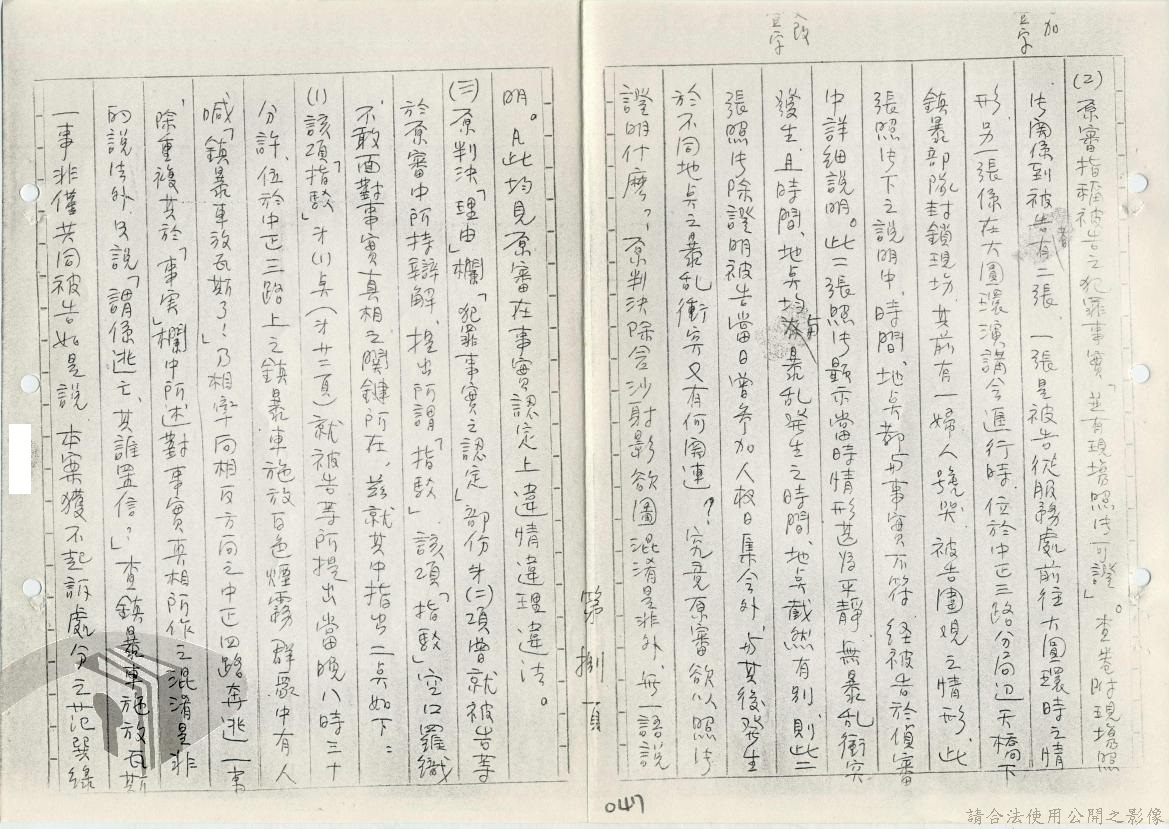 (2)原審指稱被告之犯罪事實「並有現場照片可證」。查卷附現場照
片關係到被告者有二張,一張是被告從服務處前往大圓環時之情
形,另一張係在大圓環演講會進行時,位於中正三路分局辺天橋下
鎮暴部隊封鎖現場,其前有一婦人號哭,被告圍观之情形,此
張照片下之說明中,時間地点都与事實不符,経被告於偵審
中詳細說明。此二張照片顯示當時情形甚為平靜,無暴乱衝突
發生,且時間、地点均與暴乱發生之時間、地点截然有別,則此二
張照片除證明被告當日曾參加人权日集会外,与其後發生
於不同地点之暴乱衝突又有何関連?究竟原審欲以照片
證明什麼?,原判決除含沙射影欲圖混淆是非外,無一語說
第捌頁
明。凡此均見原審在事實認定上違情違理違法。
(三)原判決「理由」欄「犯罪事實之認定」部份第(二)項曾就被告等
於原審中所持辯解,提出所謂「指駁」,該項「指駁」空口羅織
不敢面對事實真相之關鍵所在,茲就其中指出二点如下:
(1)該項「指駁」才(1)点(才廿二頁)就被告等所提出當晚八時三十
分許,位於中正三路上之鎮暴車施放白色煙霧,群眾中有人
喊「鎮暴車放瓦斯了!」乃相率向相反方向之中正四路奔逃一事
除重複其於「事实」欄中所述對事實真相所作之混淆是非
的說法外,只說「謂係逃亡,其誰置信?」查鎮暴車施放瓦斯
一事非僅共同被告如是說,本案獲不起訴處分之范巽綠
047
改
壹字
加
壹字
請合法使用公開之影像